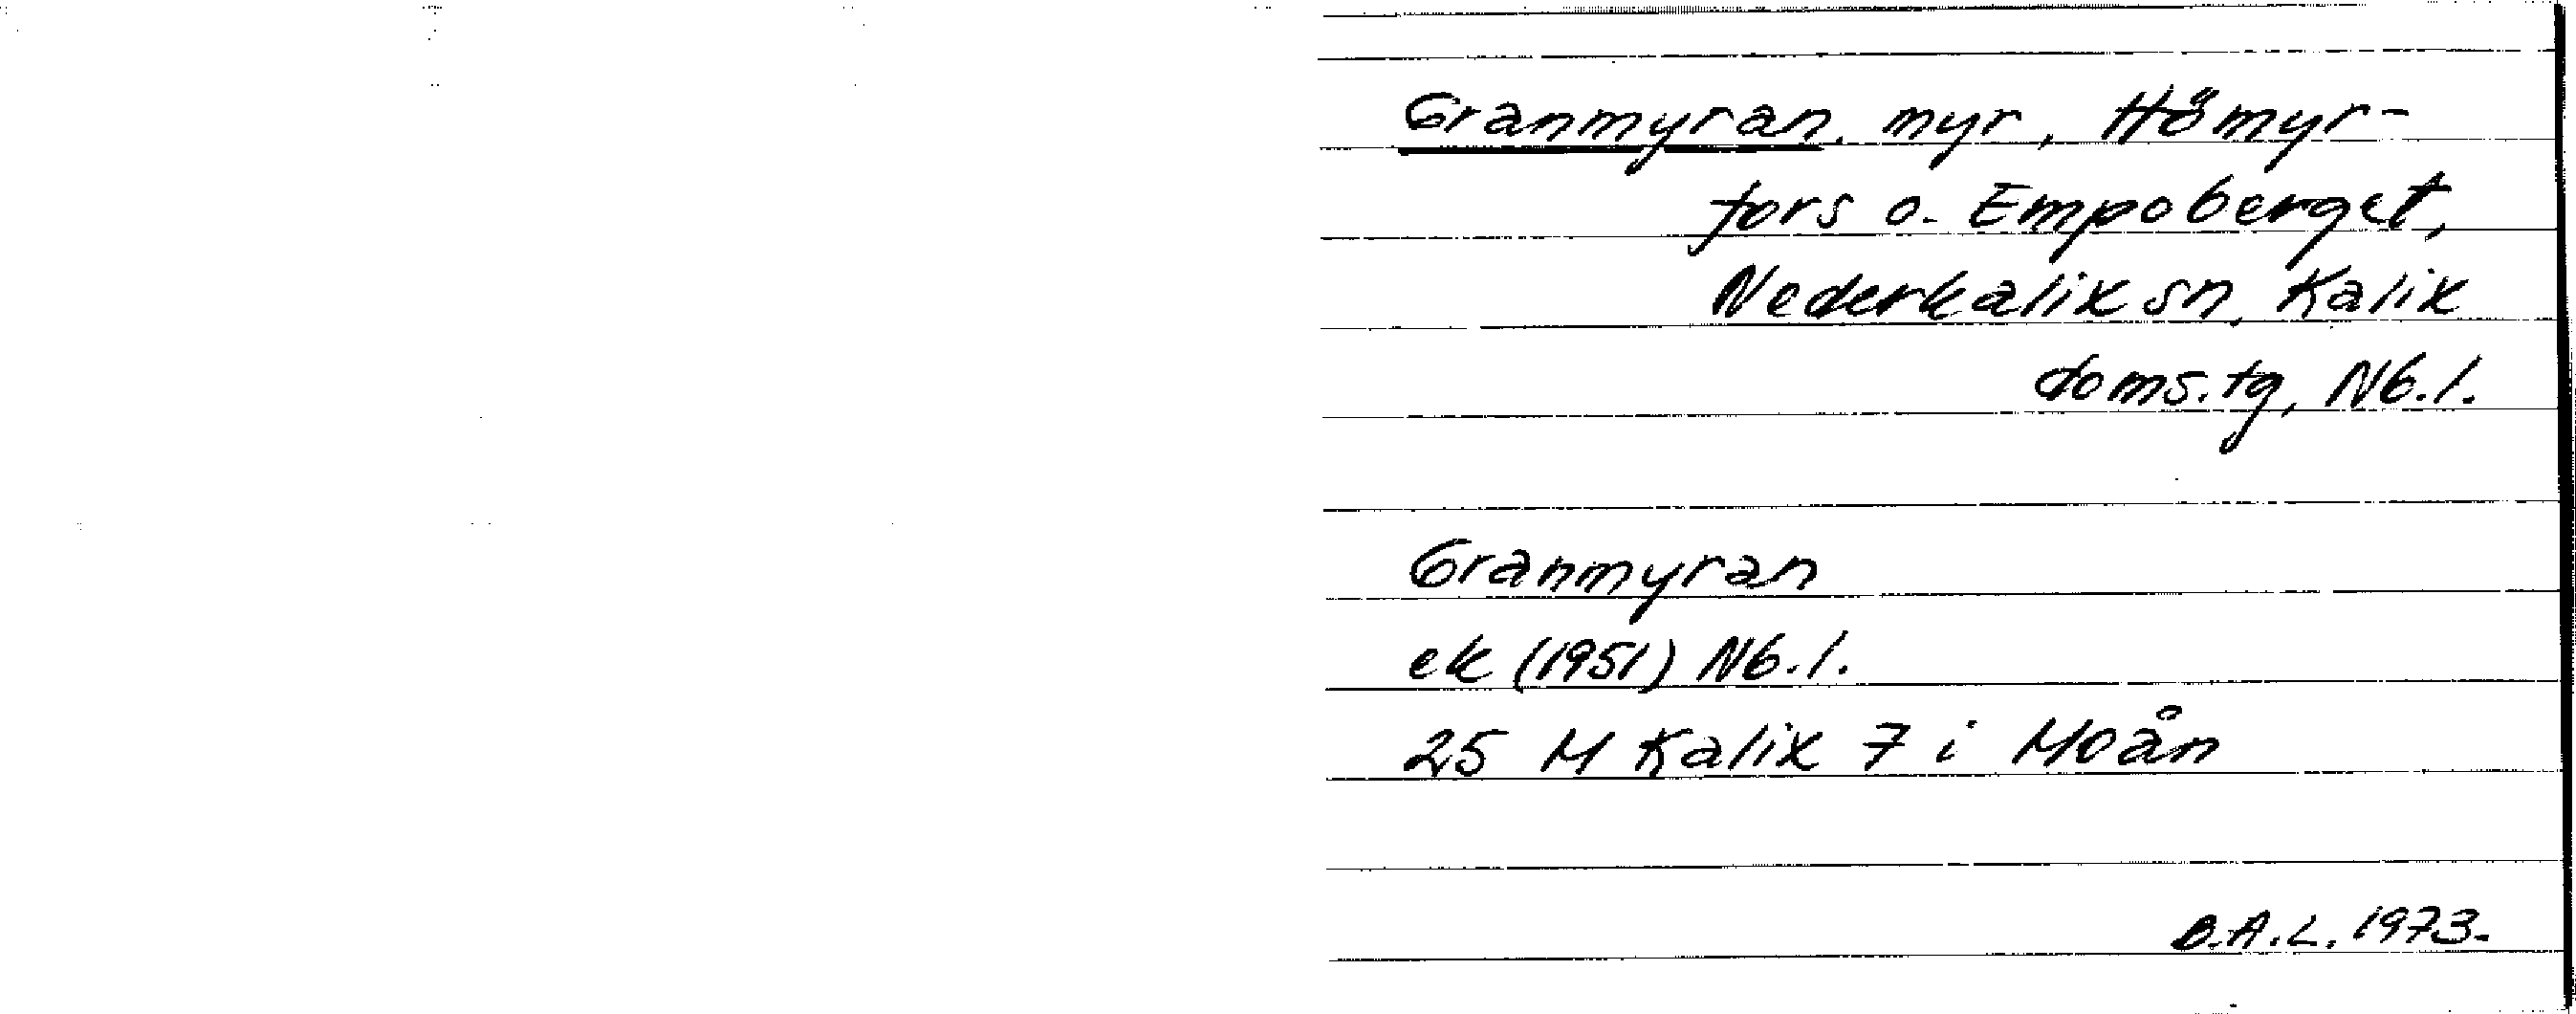 Granmyran, myr, Hömyr-
fors o. Empoberget,
Nederkalix sn, Kalix
doms.tg, Nb.l.
Granmyran
ek (1951) Nb.l.
25 M Kalix 7 i Moån
B.A.L. 1973.